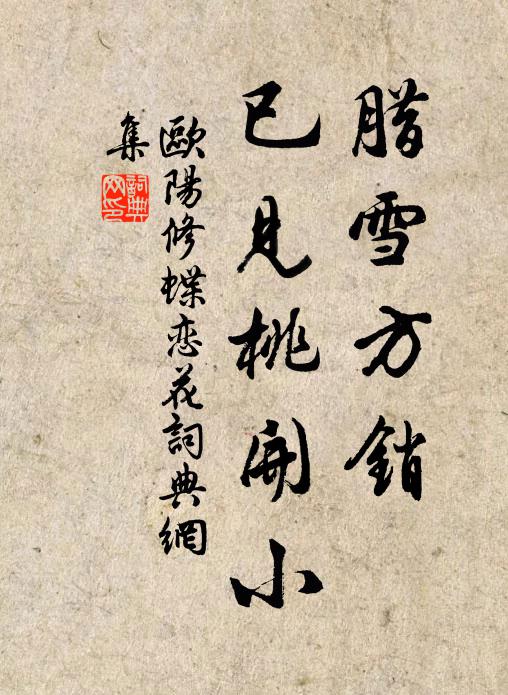 腊雪方銷
已見桃開小
歐陽修蝶恋花詞典網
集
詞典
网印